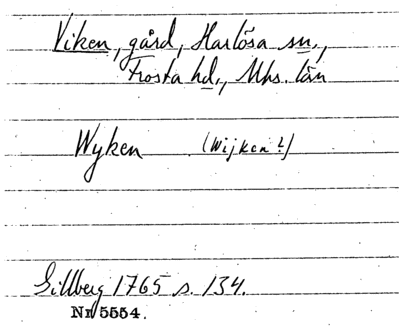 Viken, gård, Harlösa sn.,
Frosta hd., Mhs. län
Wyken (Wijken?)
Gillberg 1765 s. 134.
Nr 5554.